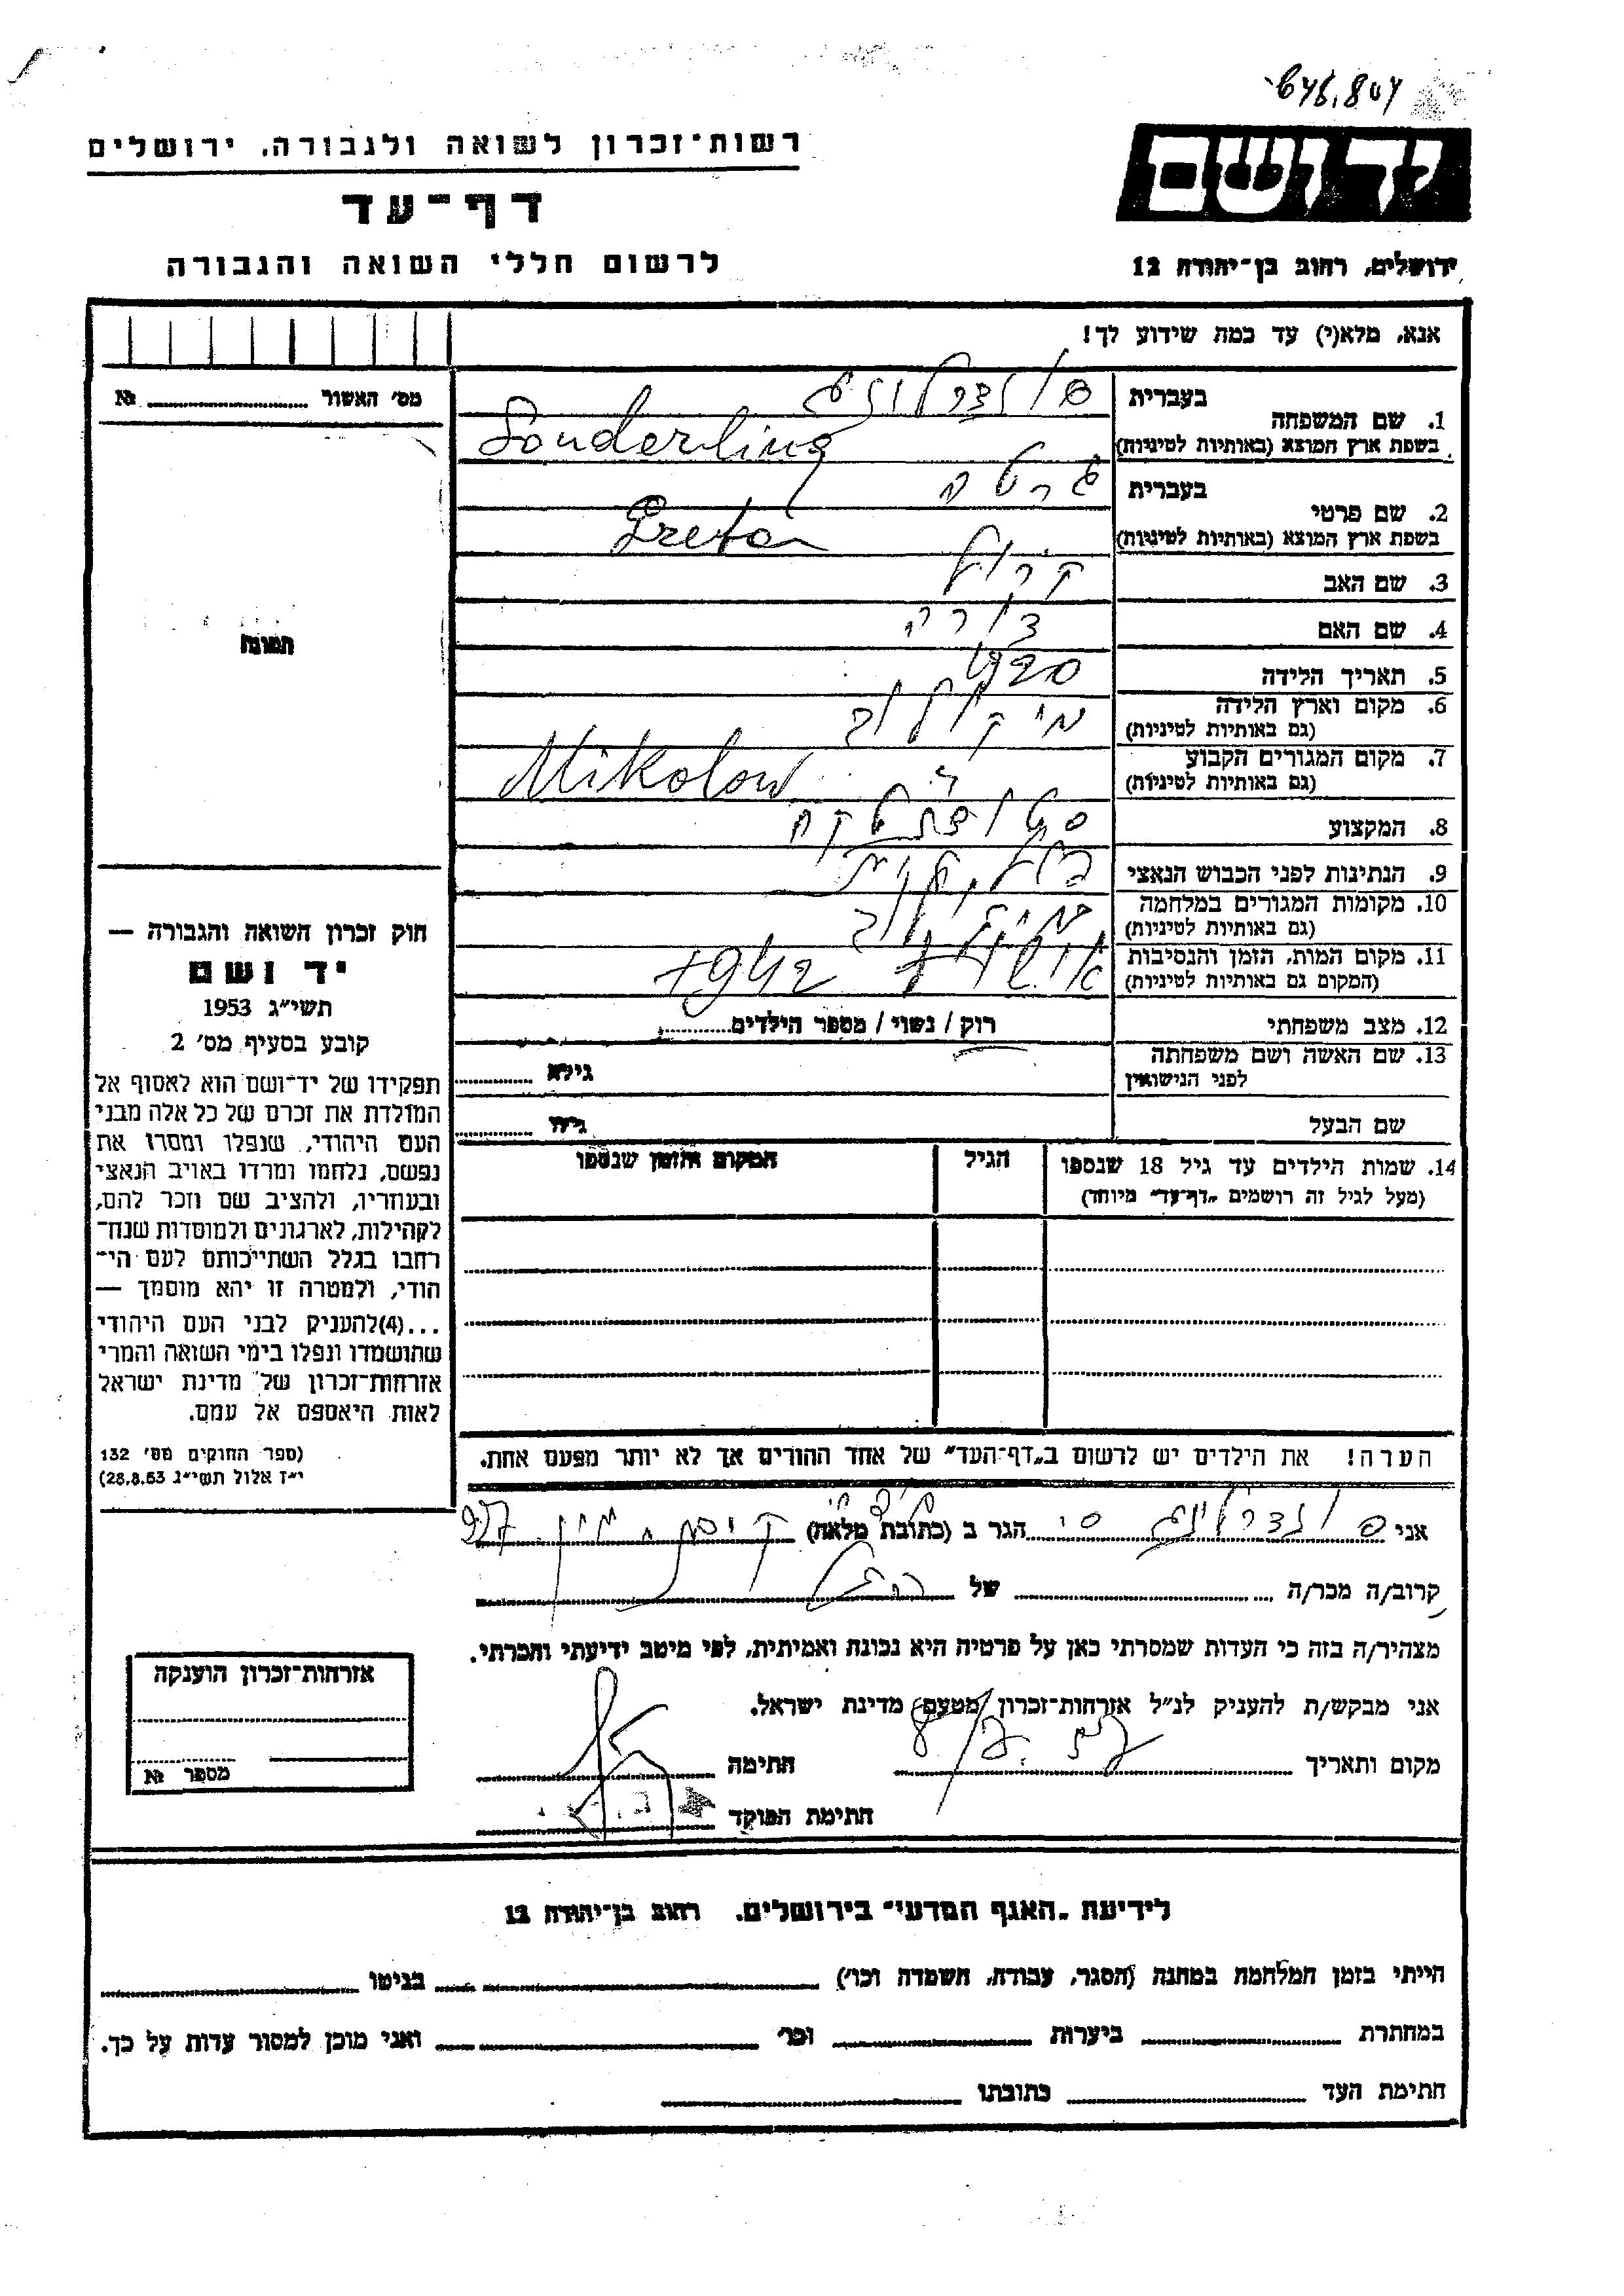 646,804
רשות־זכרון לשואה ולגבורה, ירושלים
יד ושם
דף־עד
לרשום חללי השואה והגבורה
ירושלים, רחוב בן־יהודה 12
אנא, מלא(י) עד כמה שידוע לך!
מס' האשור №
1. שם המשפחה
בעברית
בשפת ארץ המוצא (באותיות לטיניות)
Sonderling
2. שם פרטי
בעברית גרטה
בשפת ארץ המוצא (באותיות לטיניות)
Greta
3. שם האב קרול
4. שם האם
5. תאריך הלידה 1920
6. מקום וארץ הלידה מיקולוב
(גם באותיות לטיניות)
7. מקום המגורים הקבוע Mikolow
(גם באותיות לטיניות)
8. המקצוע סטודנטקה
9. הנתינות לפני הכבוש הנאצי פולנית
10. מקומות המגורים במלחמה
(גם באותיות לטיניות)
11. מקום המות, הזמן והנסיבות 1942
(המקום גם באותיות לטיניות)
12. מצב משפחתי רוק / נשוי / מספר הילדים
13. שם האשה ושם משפחתה
לפני הנישואין גילא
שם הבעל גילו
14. שמות הילדים עד גיל 18 שנספו הגיל המקום והזמן שנספו
(מעל לגיל זה רושמים „דף־עד" מיוחד)
תמונה
חוק זכרון השואה והגבורה —
יד ושם
תשי"ג 1953
קובע בסעיף מס' 2
תפקידו של יד־ושם הוא לאסוף אל
המולדת את זכרם של כל אלה מבני
העם היהודי, שנפלו ומסרו את
נפשם, נלחמו ומרדו באויב הנאצי
ובעוזריו, ולהציב שם וזכר להם,
לקהילות, לארגונים ולמוסדות שנח־
רחבו בגלל השתייכותם לעם הי־
הודי, ולמטרה זו יהא מוסמך —
...(4)להעניק לבני העם היהודי
שהושמדו ונפלו בימי השואה והמרי
אזרחות־זכרון של מדינת ישראל
לאות היאספם אל עמם.
(ספר החוקים מס' 132
י"ז אלול תשי"ג 28.8.53)
הערה! את הילדים יש לרשום ב„דף־העד" של אחד ההורים אך לא יותר מפעם אחת.
אני הגר ב (כתובת מלאה)
קרוב/ה מכר/ה של
מצהיר/ה בזה כי העדות שמסרתי כאן על פרטיה היא נכונה ואמיתית, לפי מיטב ידיעתי והכרתי.
אני מבקש/ת להעניק לנ"ל אזרחות־זכרון מטעם מדינת ישראל.
מקום ותאריך חתימה
חתימת הפוקד
אזרחות־זכרון הוענקה
מספר №
לידיעת „האגף המדעי" בירושלים, רחוב בן־יהודה 12
הייתי בזמן המלחמה במחנה (הסגר, עבודה, השמדה וכו') בגיטו
במחתרת ביערות וכו' ואני מוכן למסור עדות על כך.
חתימת העד כתובתו